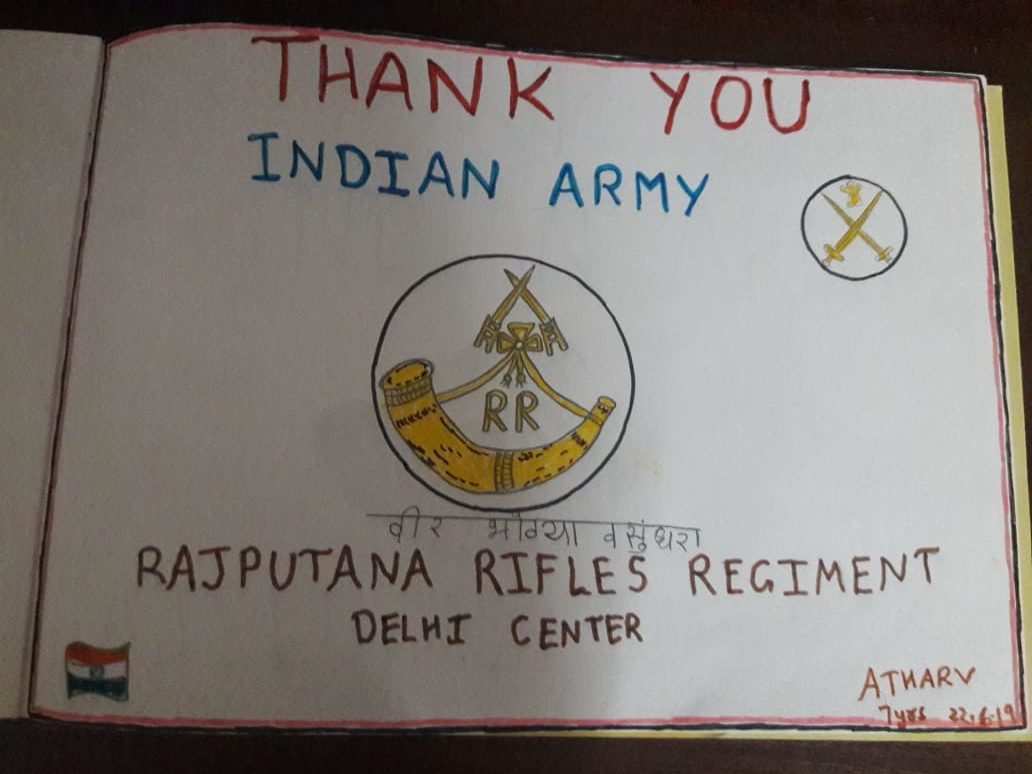 THANK YOU
INDIAN ARMY
RR
वीर भोग्या वसुंधरा
RAJPUTANA RIFLES REGIMENT
DELHI CENTER
ATHARV
7yrs 22.6.19